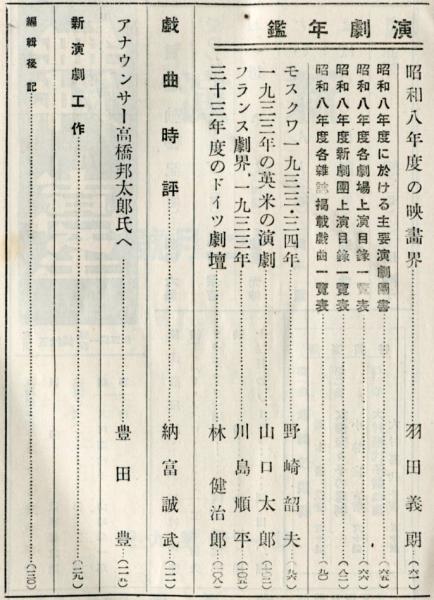 演劇年鑑
昭和八年度の映畫界……羽田義朗…(六一)
昭和八年度に於ける主要演劇圖書……(六五)
昭和八年度各劇場上演目錄一覽表……(六六)
昭和八年度新劇團上演目錄一覽表……(八二)
昭和八年度各雜誌揭載戲曲一覽表……(九〇)
モスクワ一九三三・三四年……野崎韶夫…(九六)
一九三三年の英米の演劇……山口太郎…(一〇三)
フランス劇界、一九三三年……川島順平…(一〇五)
三十三年度のドイツ劇壇……林健治郎…(一〇八)
戲曲時評……納富誠武…(一一一)
アナウンサー高橋邦太郎氏へ……豊田豊…(一一八)
新演劇工作……(一二九)
編輯後記……(一三〇)